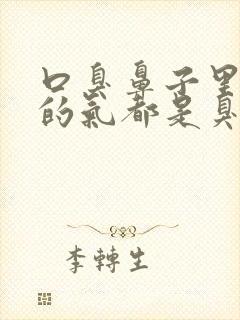 口臭鼻子里
的气都是臭
李轉生